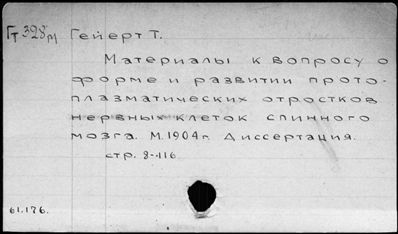 Гт 328м Гейерт Т.
Материалы к вопросу о
форме и развитии прото-
плазматических отростков
нервных клеток спинного
мозга. М. 1904 г. Диссертация.
стр. 8-116
61.176.